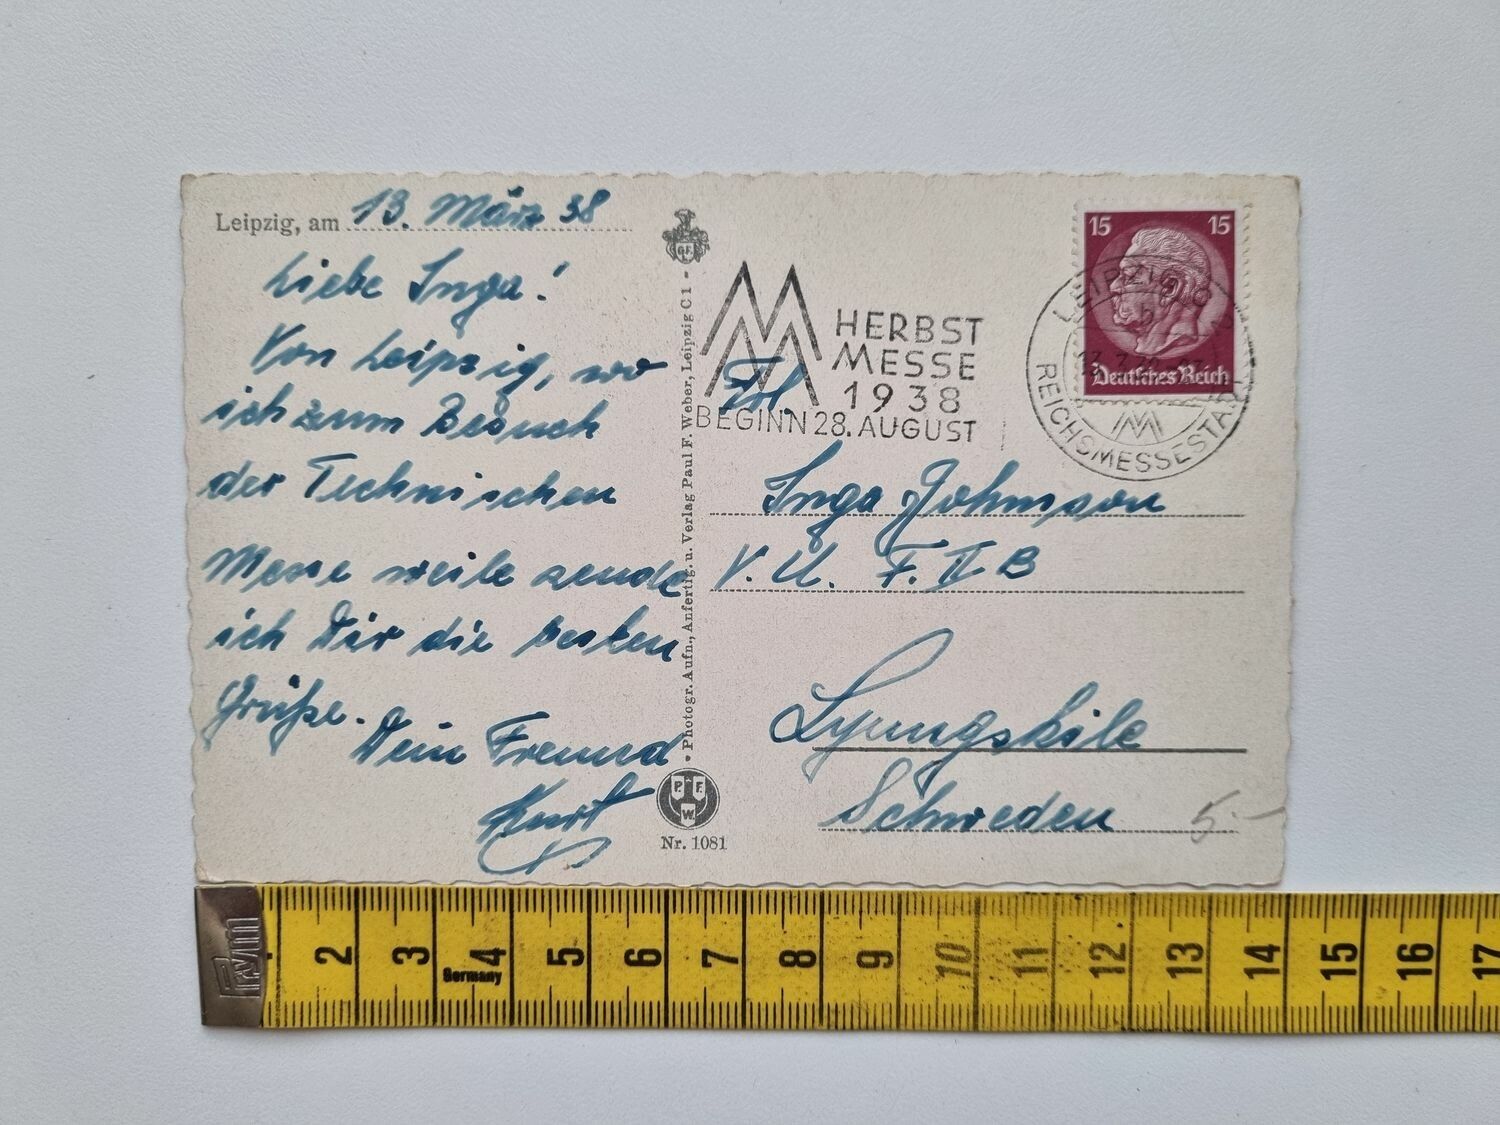 Leipzig, am 13. März 38
Liebe Inga!
Von Leipzig, wo
ich zum Besuch
der Technischen
Messe weile sende
ich Dir die besten
Grüße.
Dein Freund
Kurt
G.F.
• Photogr. Aufn., Anfertig. u. Verlag Paul F. Weber, Leipzig C 1 •
P. F.
W.
Nr. 1081
HERBST
MESSE
1938
BEGINN 28. AUGUST
15 15
Deutsches Reich
LEIPZIG
REICHSMESSESTADT
Frl.
Inga Johnsson
V. U. F. II B
Lyungskile
Schweden
5.-
Prym
2 3 4 5 6 7 8 9 10 11 12 13 14 15 16 17
Germany